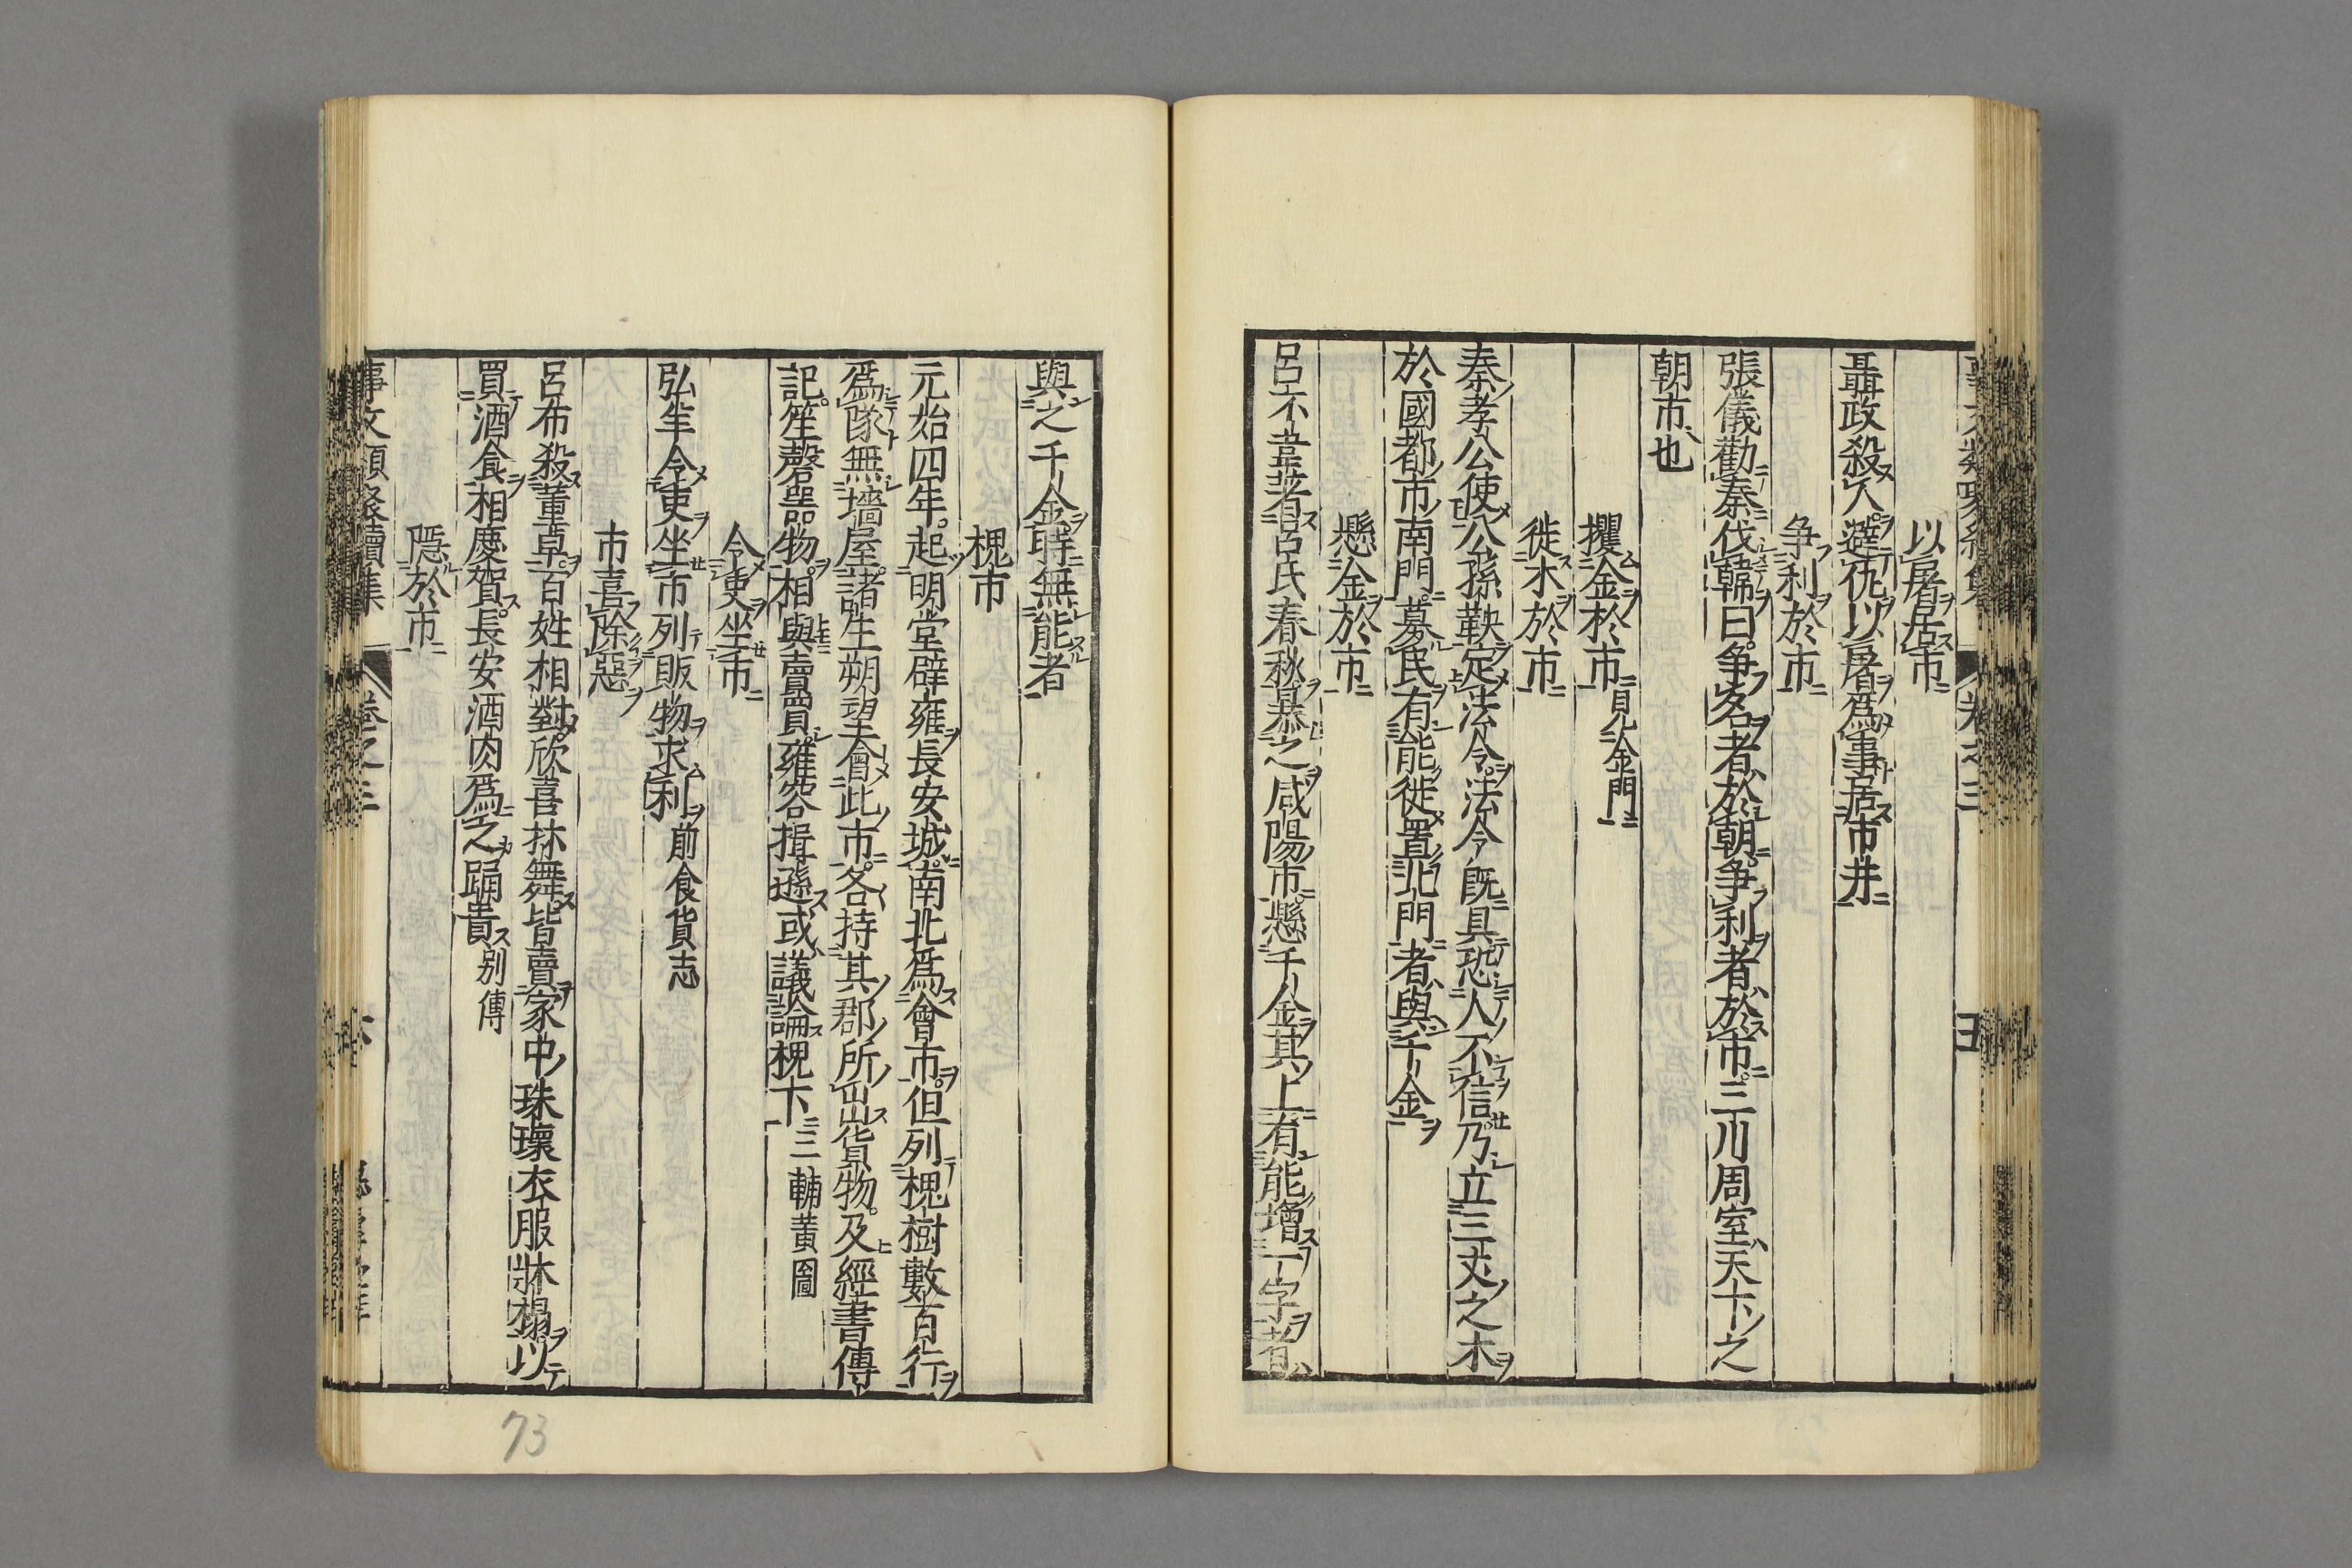 以屠居市
聶政殺人避仇以屠爲事居市井
爭利於市
張儀勸秦伐韓曰爭名者於朝爭利者於市三川周室天下之
朝市也
攫金於市見金門
徙木於市
秦孝公使公孫鞅定法令法令既具恐人不信乃立三丈之木
於國都市南門募民有能徙置北門者與千金
懸金於市
呂不韋著呂氏春秋暴之咸陽市懸千金其上有能增一字者
與之千金時無能者
槐市
元始四年起明堂辟雍長安城南北爲會市但列槐樹數百行
爲隊無墻屋諸生朔望會此市各持其郡所出貨物及經書傳
記笙磬器物相與賣買雍容揖遜或議論槐下三輔黃圖
令吏坐市
弘羊令吏坐市列販物求利前食貨志
市喜除惡
呂布殺董卓百姓相對欣喜抃舞皆賣家中珠瓌衣服牀榻以
買酒食相慶賀長安酒肉爲之踊貴別傳
隱於市
事文類聚續集 卷之三
73